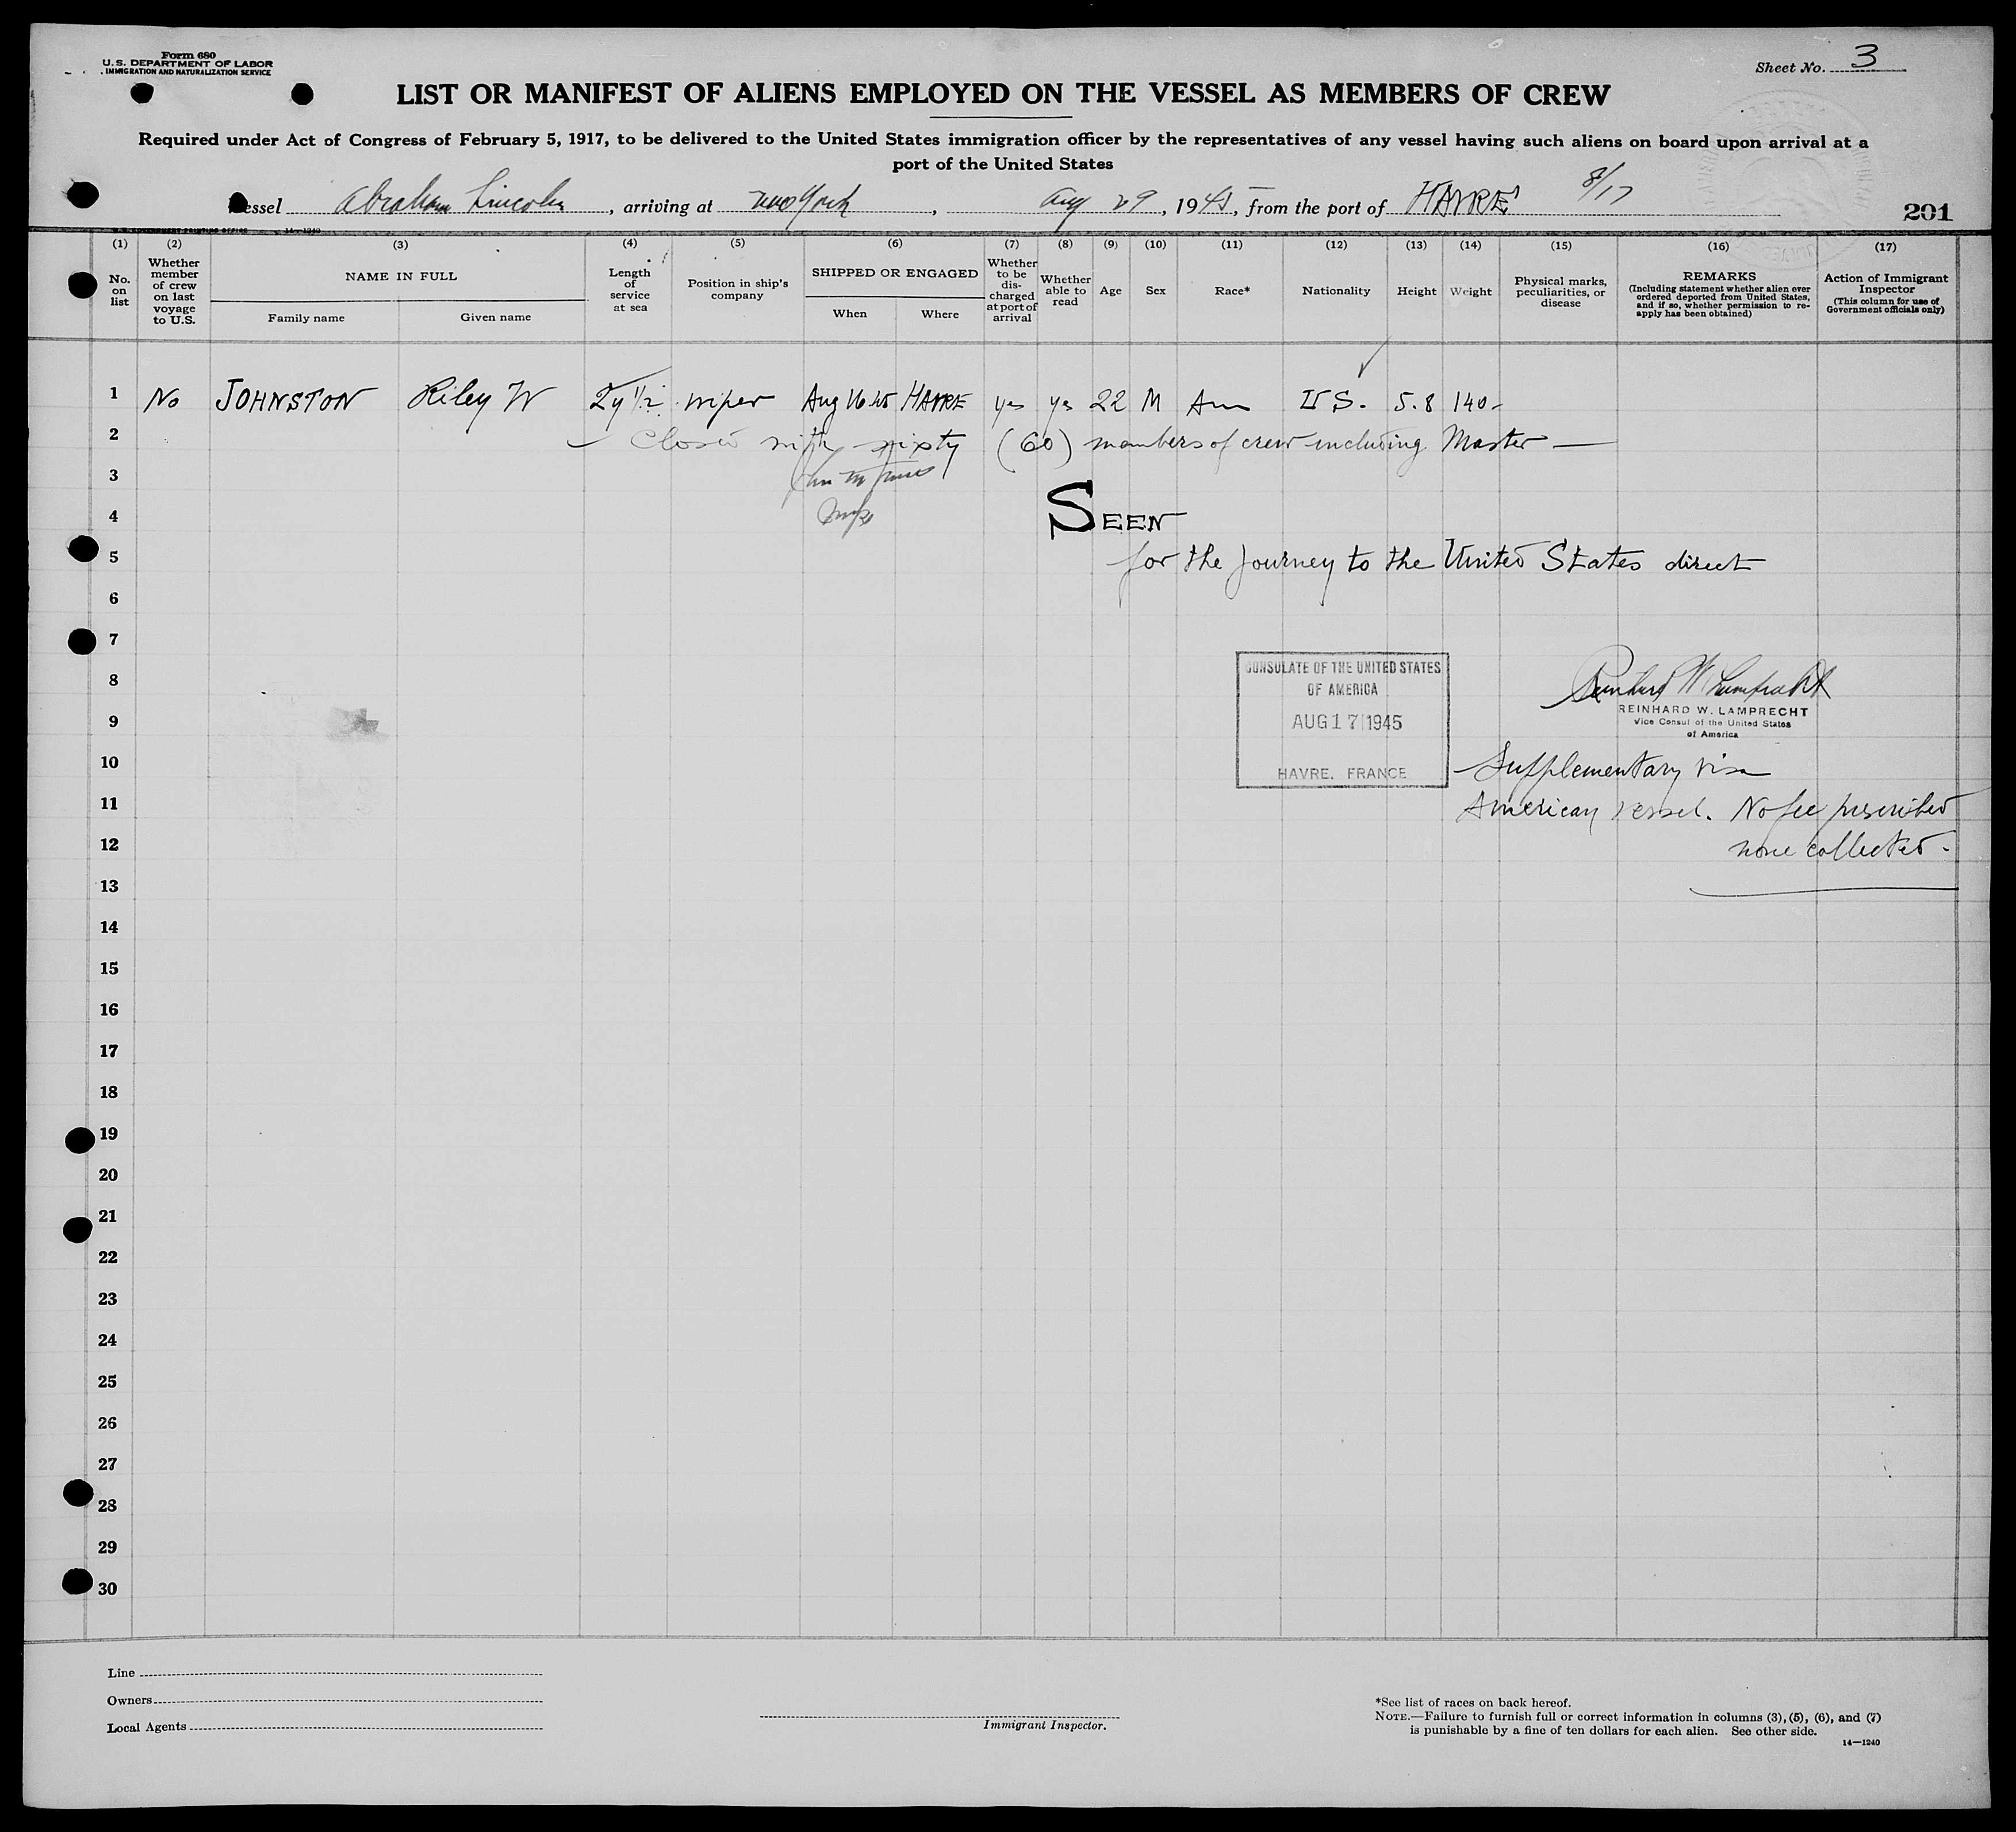 Form 680
U. S. DEPARTMENT OF LABOR
IMMIGRATION AND NATURALIZATION SERVICE
Sheet No. 3
LIST OR MANIFEST OF ALIENS EMPLOYED ON THE VESSEL AS MEMBERS OF CREW
Required under Act of Congress of February 5, 1917, to be delivered to the United States immigration officer by the representatives of any vessel having such aliens on board upon arrival at a
port of the United States
Vessel Abraham Lincoln, arriving at New York, Aug 29, 1945, from the port of HAVRE 8/17
201
14-1240
(1) (2) (3) (4) (5) (6) (7) (8) (9) (10) (11) (12) (13) (14) (15) (16) (17)
No. on list
Whether member of crew on last voyage to U.S.
NAME IN FULL
Family name
Given name
Length of service at sea
Position in ship's company
SHIPPED OR ENGAGED
When
Where
Whether to be discharged at port of arrival
Whether able to read
Age
Sex
Race*
Nationality
Height
Weight
Physical marks, peculiarities, or disease
REMARKS
(Including statement whether alien ever ordered deported from United States, and if so, whether permission to re-apply has been obtained)
Action of Immigrant Inspector
(This column for use of Government officials only)
1 No JOHNSTON Riley W 2y 1/2 wiper Aug 16 45 HAVRE yes yes 22 M Am U S. 5.8 140-
2 Closed with sixty (60) members of crew including Master —
3
4 SEEN
5 for the Journey to the United States direct
6
7
8
9
10
11
12
13
14
15
16
17
18
19
20
21
22
23
24
25
26
27
28
29
30
CONSULATE OF THE UNITED STATES
OF AMERICA
AUG 17 1945
HAVRE, FRANCE
Reinhard W. Lamprecht
REINHARD W. LAMPRECHT
Vice Consul of the United States
of America
Supplementary visa
American vessel. No fee prescribed
none collected.
Line
Owners
Local Agents
Immigrant Inspector.
*See list of races on back hereof.
NOTE.—Failure to furnish full or correct information in columns (3), (5), (6), and (7)
is punishable by a fine of ten dollars for each alien. See other side.
14—1240